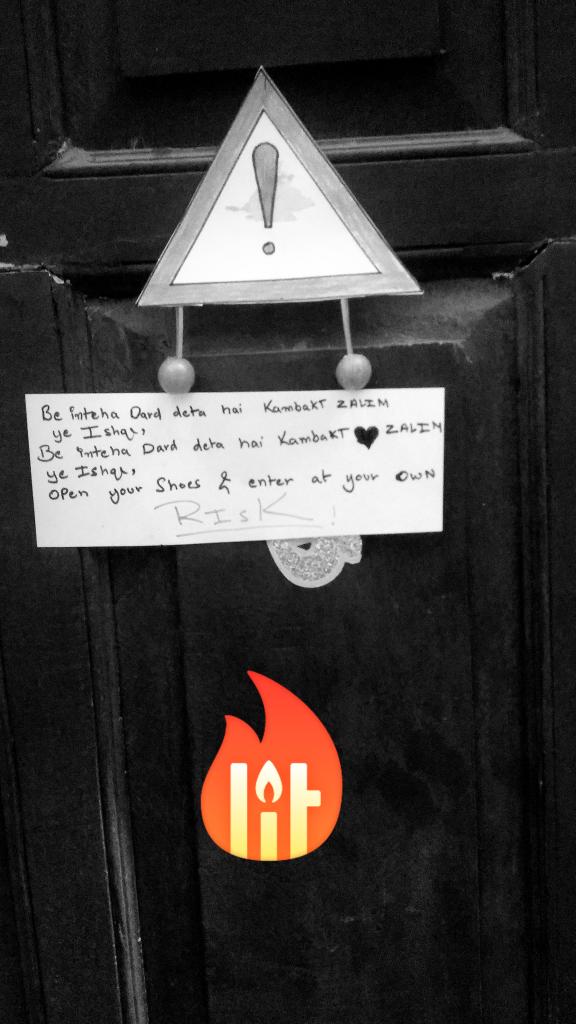 !
Be inteha Dard deta hai KambakT ZALIM
ye Ishq,
Be inteha Dard deta hai KambakT ZALIM
ye Ishq,
OPen your Shoes & enter at your OWN
RISK !
lit